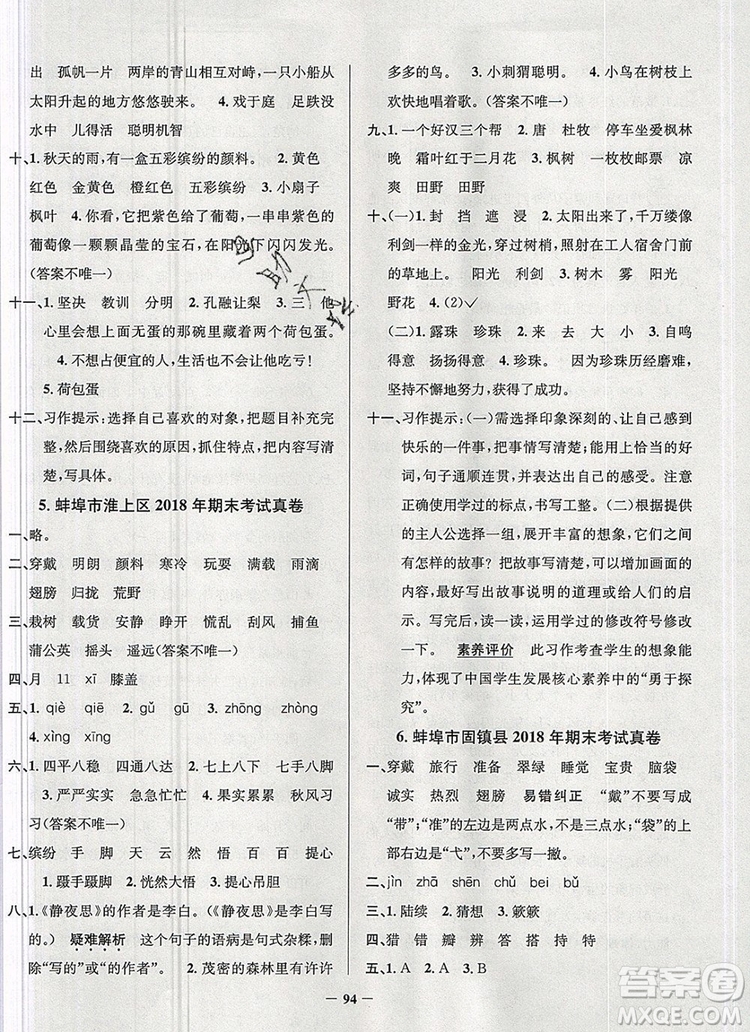 出　孤帆一片　两岸的青山相互对峙,一只小船从
太阳升起的地方悠悠驶来。　4. 戏于庭　足跌没
水中　儿得活　聪明机智
十、1. 秋天的雨,有一盒五彩缤纷的颜料。　2. 黄色
红色　金黄色　橙红色　五彩缤纷　3. 小扇子
枫叶　4. 你看,它把紫色给了葡萄,一串串紫色的
葡萄像一颗颗晶莹的宝石,在阳光下闪闪发光。
(答案不唯一)
十一、1. 坚决　教训　分明　2. 孔融让梨　3. 三　他
心里会想上面无蛋的那碗里藏着两个荷包蛋。
4. 不想占便宜的人,生活也不会让他吃亏!
5. 荷包蛋
十二、习作提示:选择自己喜欢的对象,把题目补充完
整,然后围绕喜欢的原因,抓住特点,把内容写清
楚,写具体。
5. 蚌埠市淮上区 2018 年期末考试真卷
一、略。
二、穿戴　明朗　颜料　寒冷　玩耍　满载　雨滴
翅膀　归拢　荒野
三、栽树　载货　安静　睁开　慌乱　刮风　捕鱼
蒲公英　摇头　遥远(答案不唯一)
四、月　11　xī　膝盖
五、1. qiè　qiē　2. gǔ　gū　3. zhōng　zhòng
4. xīng　xìng
六、1. 四平八稳　四通八达　2. 七上八下　七手八脚
3. 严严实实　急急忙忙　4. 春华秋实　秋风习
习(答案不唯一)
七、缤纷　手　脚　天　云　然　悟　百　百　提心
1. 蹑手蹑脚　2. 恍然大悟　3. 提心吊胆
八、1.《静夜思》的作者是李白。(《静夜思》是李白写
的。)　疑难解析　这个句子的语病是句式杂糅,
删除“写的”或“的作者”。　2. 茂密的森林里有许许
多多的鸟。　3. 小刺猬聪明。　4. 小鸟在树枝上
欢快地唱着歌。(答案不唯一)
九、1. 一个好汉三个帮　2. 唐　杜牧　停车坐爱枫林
晚　霜叶红于二月花　3. 枫树　一枚枚邮票　凉
爽　田野　田野
十、(一)1. 封　挡　遮　浸　2. 太阳出来了,千万缕像
利剑一样的金光,穿过树梢,照射在工人宿舍门前
的草地上。　阳光　利剑　3. 树木　雾　阳光
野花　4. (2)✓
(二)1. 露珠　珍珠　2. 来　去　大　小　3. 自鸣
得意　扬扬得意　4. 珍珠。　因为珍珠历经磨难,
坚持不懈地努力,获得了成功。
十一、习作提示:(一)需选择印象深刻的、让自己感到
快乐的一件事,把事情写清楚,用上恰当的、美
好的词,句子通顺连贯,表达出快乐的心情。注意
正确使用学过的标点,写完改一改。(二)在提供
的主人公选择一组,展开丰富的想象,它们之间
有怎样的故事?把故事写清楚,可以增加画面的
内容,写出故事说明的道理或自己想告诉人们的
内容。写完后,读一读,运用学过的修改符号修改
一下。　素养评价　此习作考查学生的想象能
力,体现了中国学生发展核心素养中的“勇于探
究”。
6. 蚌埠市固镇县 2018 年期末考试真卷
一、穿戴　旅行　准备　翠绿　睡觉　宝贵　脑袋
诚实　热烈　翅膀　易错纠正　“戴”不要写成
“带”;“准”的左边是两点水,不是三点水;“袋”的上
部右边是“弋”,不要多写一撇。
二、jìn　zhā　shēn　chǔ　bei　bǔ
三、1. 陆续　2. 猜想　3. 簌簌
四、猎　错　瓣　辨　答　搭　持　特
五、1. A　2. A　3. B
— 94 —
答案圈
MXQE.COM